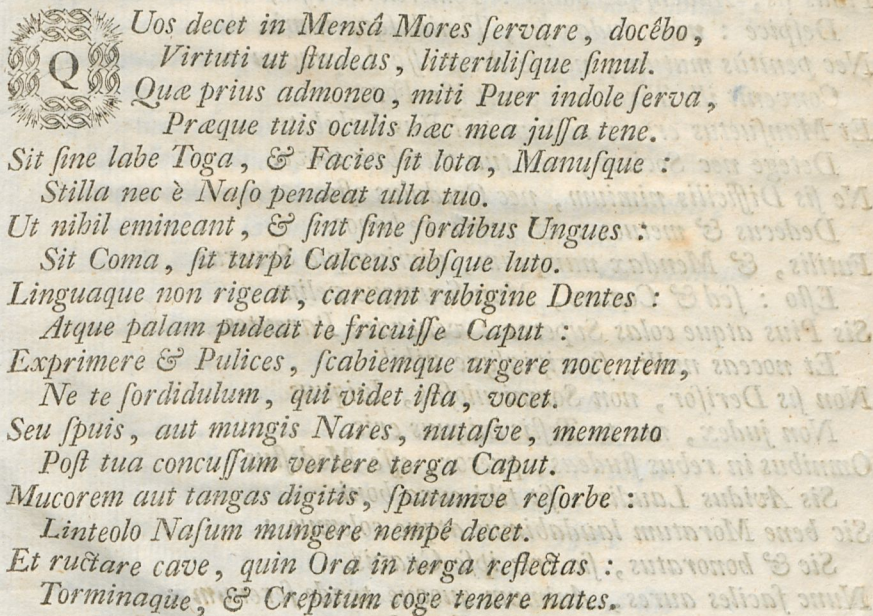 QUos decet in Mensâ Mores ſervare, docêbo,
Virtuti ut ſtudeas, litteruliſque ſimul.
Quæ prius admoneo, miti Puer indole ſerva,
Præque tuis oculis hæc mea juſſa tene.
Sit ſine labe Toga, & Facies ſit lota, Manuſque :
Stilla nec è Naſo pendeat ulla tuo.
Ut nihil emineant, & ſint ſine ſordibus Ungues :
Sit Coma, ſit turpi Calceus abſque luto.
Linguaque non rigeat, careant rubigine Dentes :
Atque palam pudeat te fricuiſſe Caput :
Exprimere & Pulices, ſcabiemque urgere nocentem,
Ne te ſordidulum, qui videt iſta, vocet.
Seu ſpuis, aut mungis Nares, nutaſve, memento
Poſt tua concuſſum vertere terga Caput.
Mucorem aut tangas digitis, ſputumve reſorbe :
Linteolo Naſum mungere nempê decet.
Et ructare cave, quin Ora in terga reflectas :
Torminaque, & Crepitum coge tenere nates.